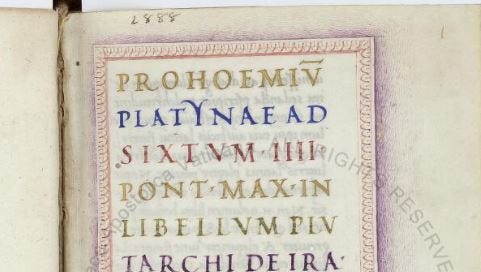 2888
PROHOEMIV̄
PLATYNAE AD
SIXTVM·IIII·
PONT·MAX·IN
LIBELLVM PLV
TARCHI DE IRA·